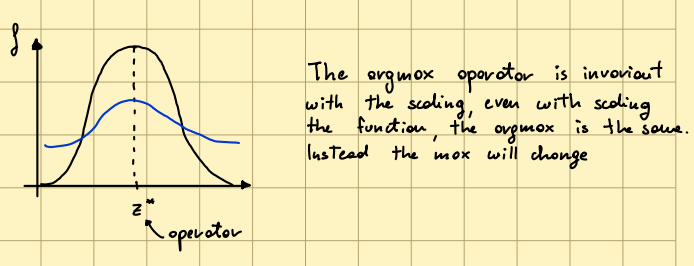 f
The argmax operator is invariant
with the scaling, even with scaling
the function, the argmax is the same.
Instead the max will change
z*
operator